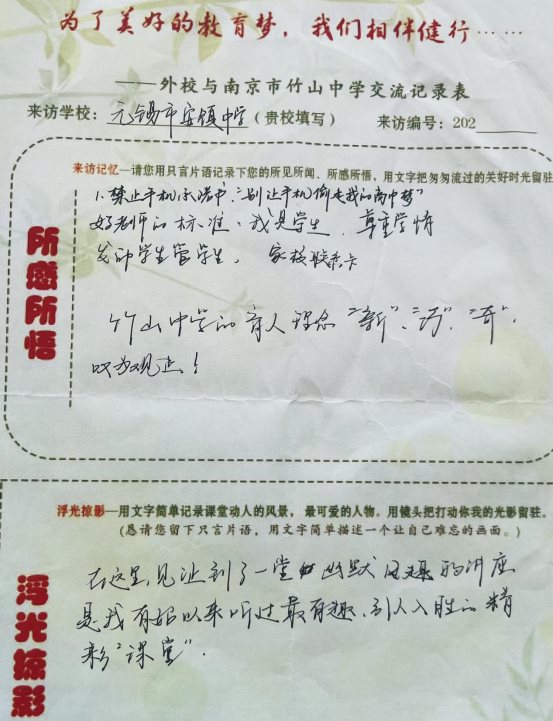 为了美好的教育梦，我们相伴健行……
——外校与南京市竹山中学交流记录表
来访学校：无锡市安镇中学（贵校填写） 来访编号：202
来访记忆—请您用只言片语记录下您的所见所闻、所感所悟，用文字把匆匆流过的美好时光留驻
所感所悟
1.禁止手机承诺书：“别让手机偷走我的高中梦”
好老师的标准：我是学生 尊重学情
发动学生管学生， 家校联系卡
竹山中学的育人理念“新”、“活”、“奇”，
叹为观止！
浮光掠影—用文字简单记录课堂动人的风景，最可爱的人物。用镜头把打动你我的光影留驻。
(恳请您留下只言片语，用文字简单描述一个让自己难忘的画面。)
浮光掠影
在这里见证到了一堂 幽默 的讲座
是我有始以来听过最有趣、引人入胜的精
彩“课堂”.